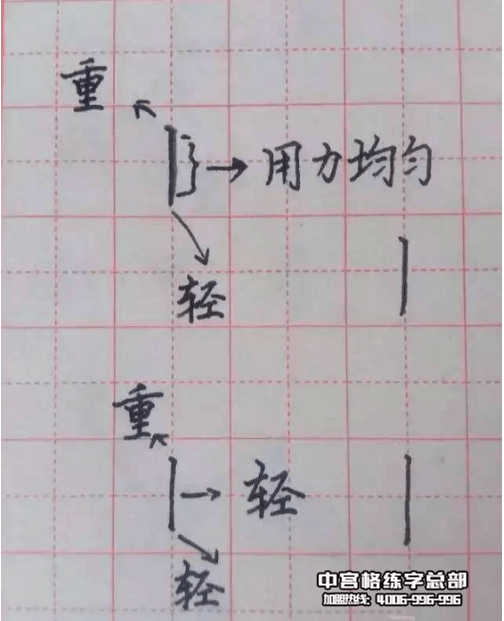 重
用力均匀
轻
重
轻
轻
中宫格练字总部
加盟热线: 4006-996-996